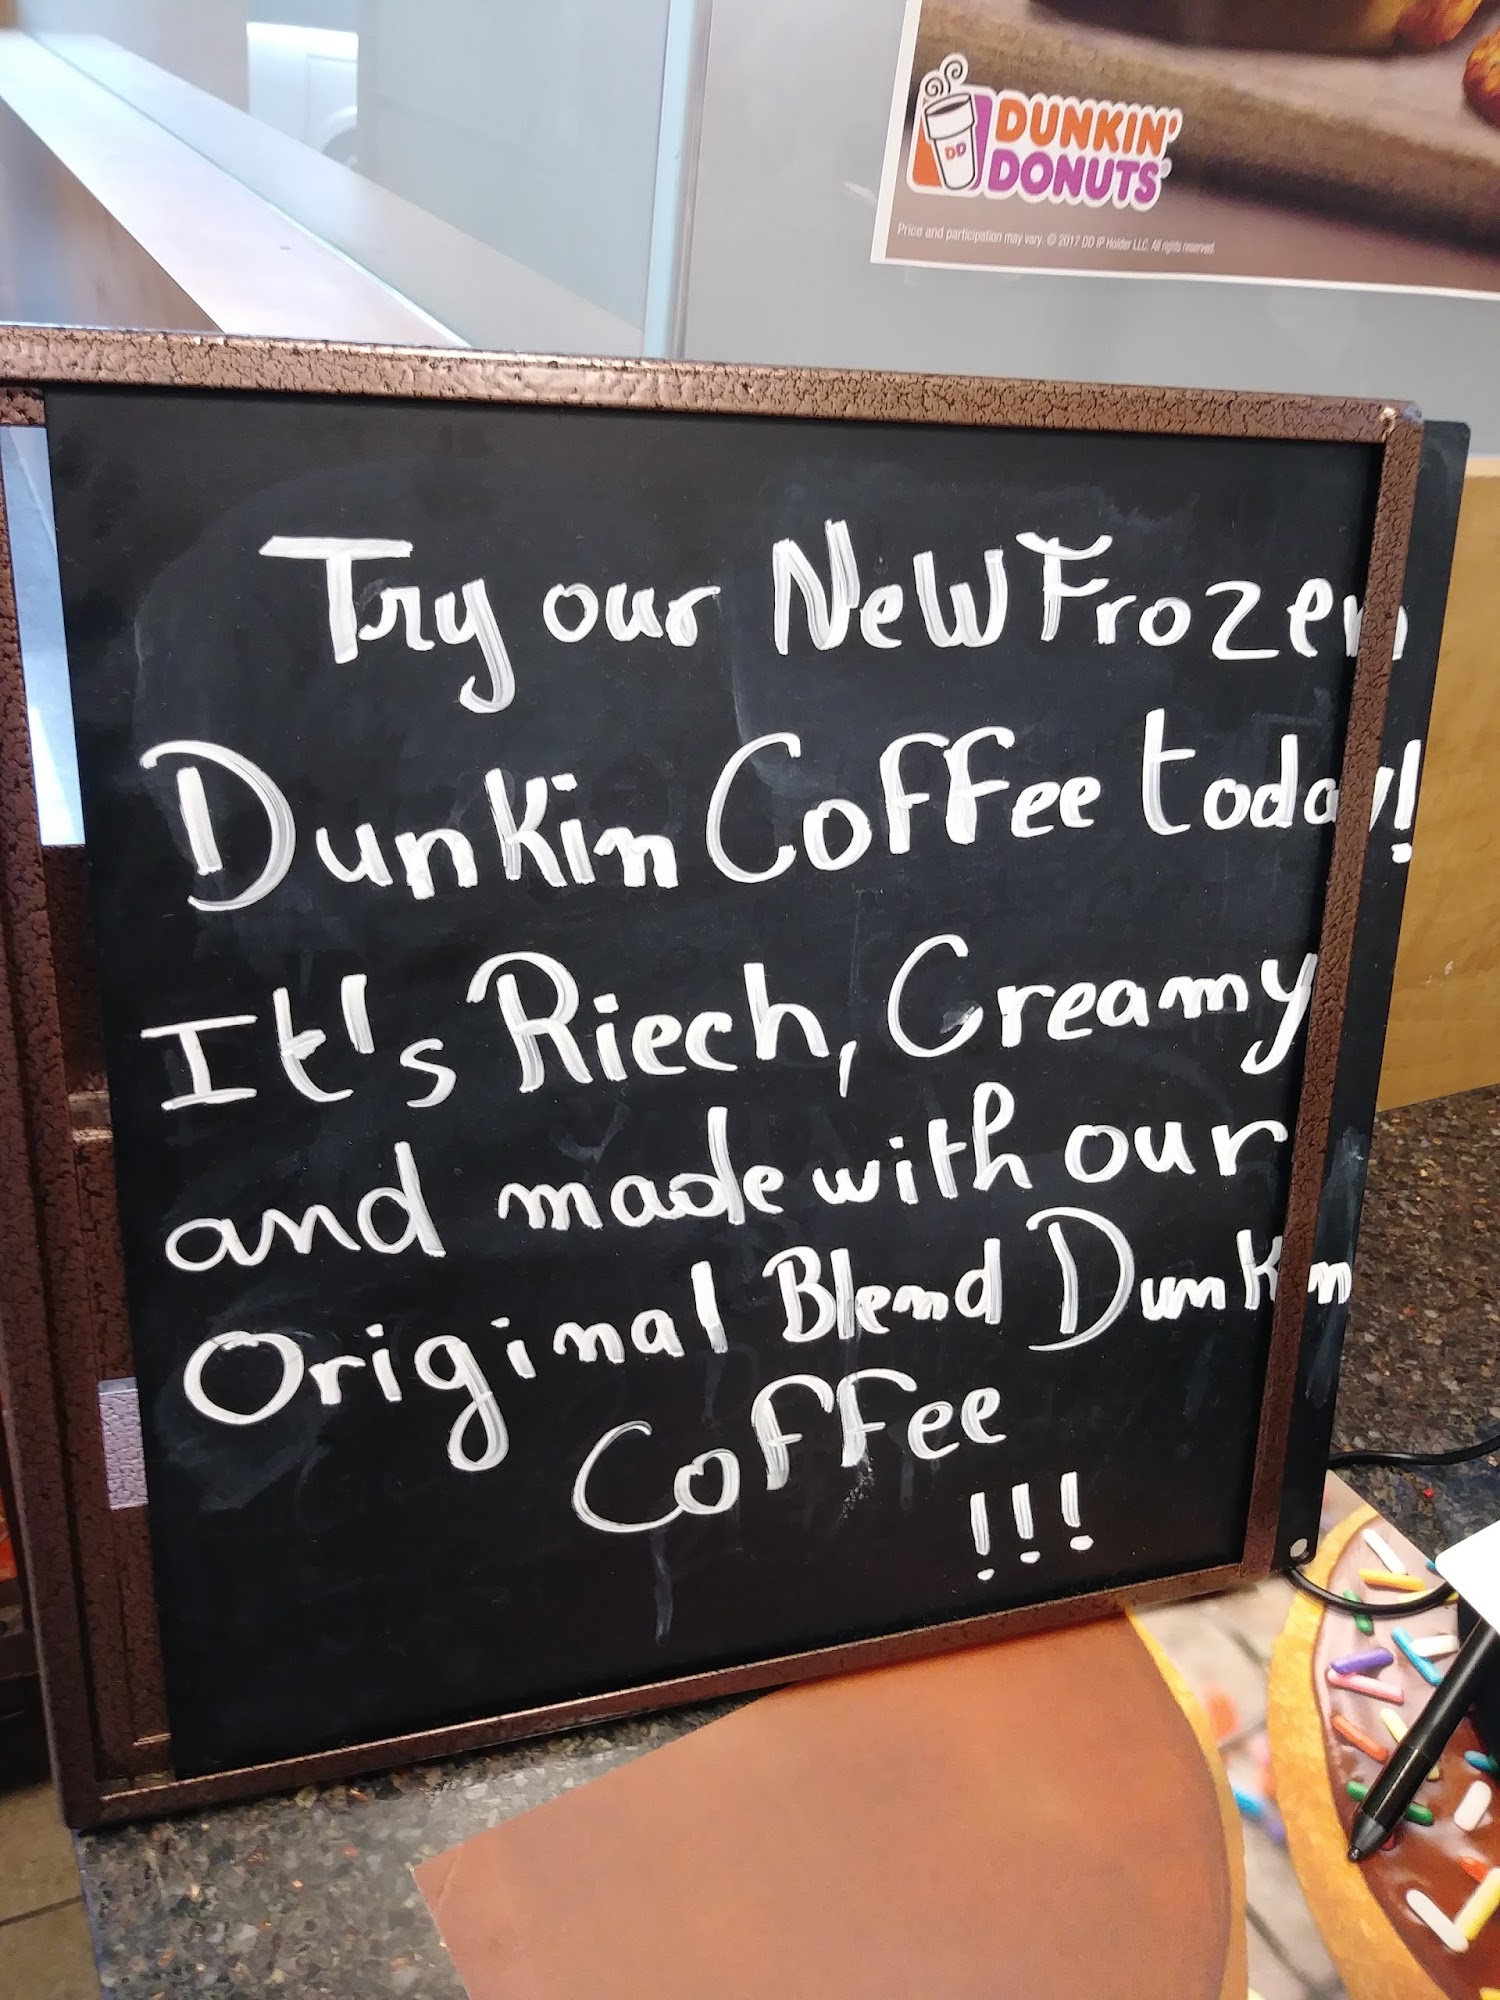 DUNKIN'
DONUTS
DD
Price and participation may vary. © 2017 DD IP Holder LLC. All rights reserved.
Try our New Frozen
Dunkin Coffee today!
It's Riech, Creamy
and made with our
Original Blend Dunkin
Coffee
!!!